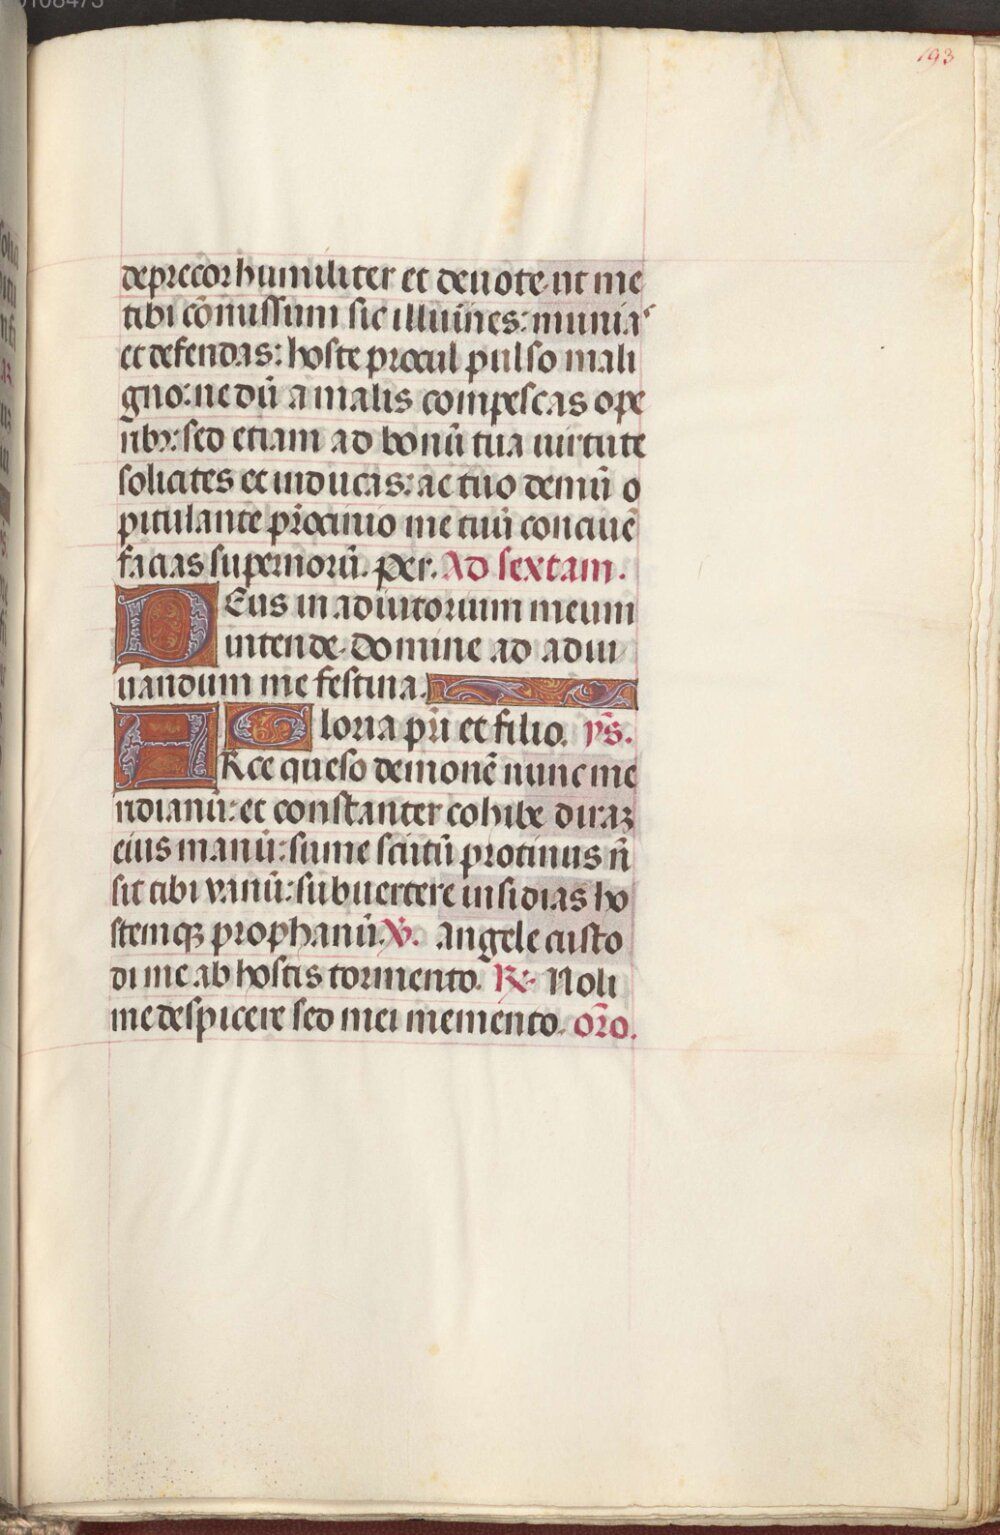 193
deprecor humiliter et deuote ut me
tibi cõmissum sic illumĩes: munias
et defendas: hoste procul pulso mali
gno: ne dũ a malis compescas ope
ribꝰ: sed etiam ad bonũ tua uirtute
solicites et inducas: ac tuo demũ o
pitulante pr̃ocinio me tuũ conciuẽ
facias supernorũ. Per. Ad sextam.
DEus in adiutorium meum
intende. Domine ad adiu
uandum me festina.
Gloria pr̃i et filio. ym̃s.
ARce queso demonẽ nunc me
ridianũ: et constanter cohibe diraz
eius manũ: sume scutũ protinus ñ
sit tibi vanũ: subuertere insidias ho
stemqꝫ prophanũ. V̓. Angele custo
di me ab hostis tormento. ℞. Noli
me despicere sed mei memento. or̃o.